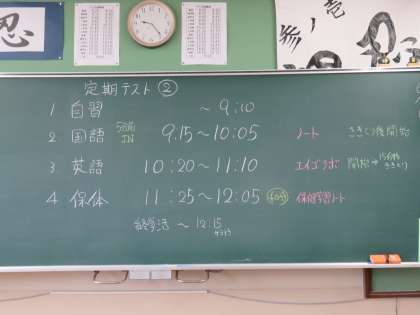 忍
参ノ竜
定期テスト②
1 自習 ～9:10
2 国語 5分前IN 9:15～10:05 ノート ききとり後開始
3 英語 10:20～11:10 エイゴラボ 開始→15分後ききとり
4 保体 11:25～12:05 40分 保健学習ノート
終学活 ～12:15